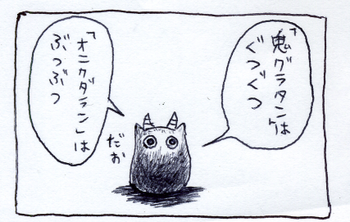 「鬼グラタン」は
ぐつぐつ
「オニクダラン」は
ぶつぶつ
だお